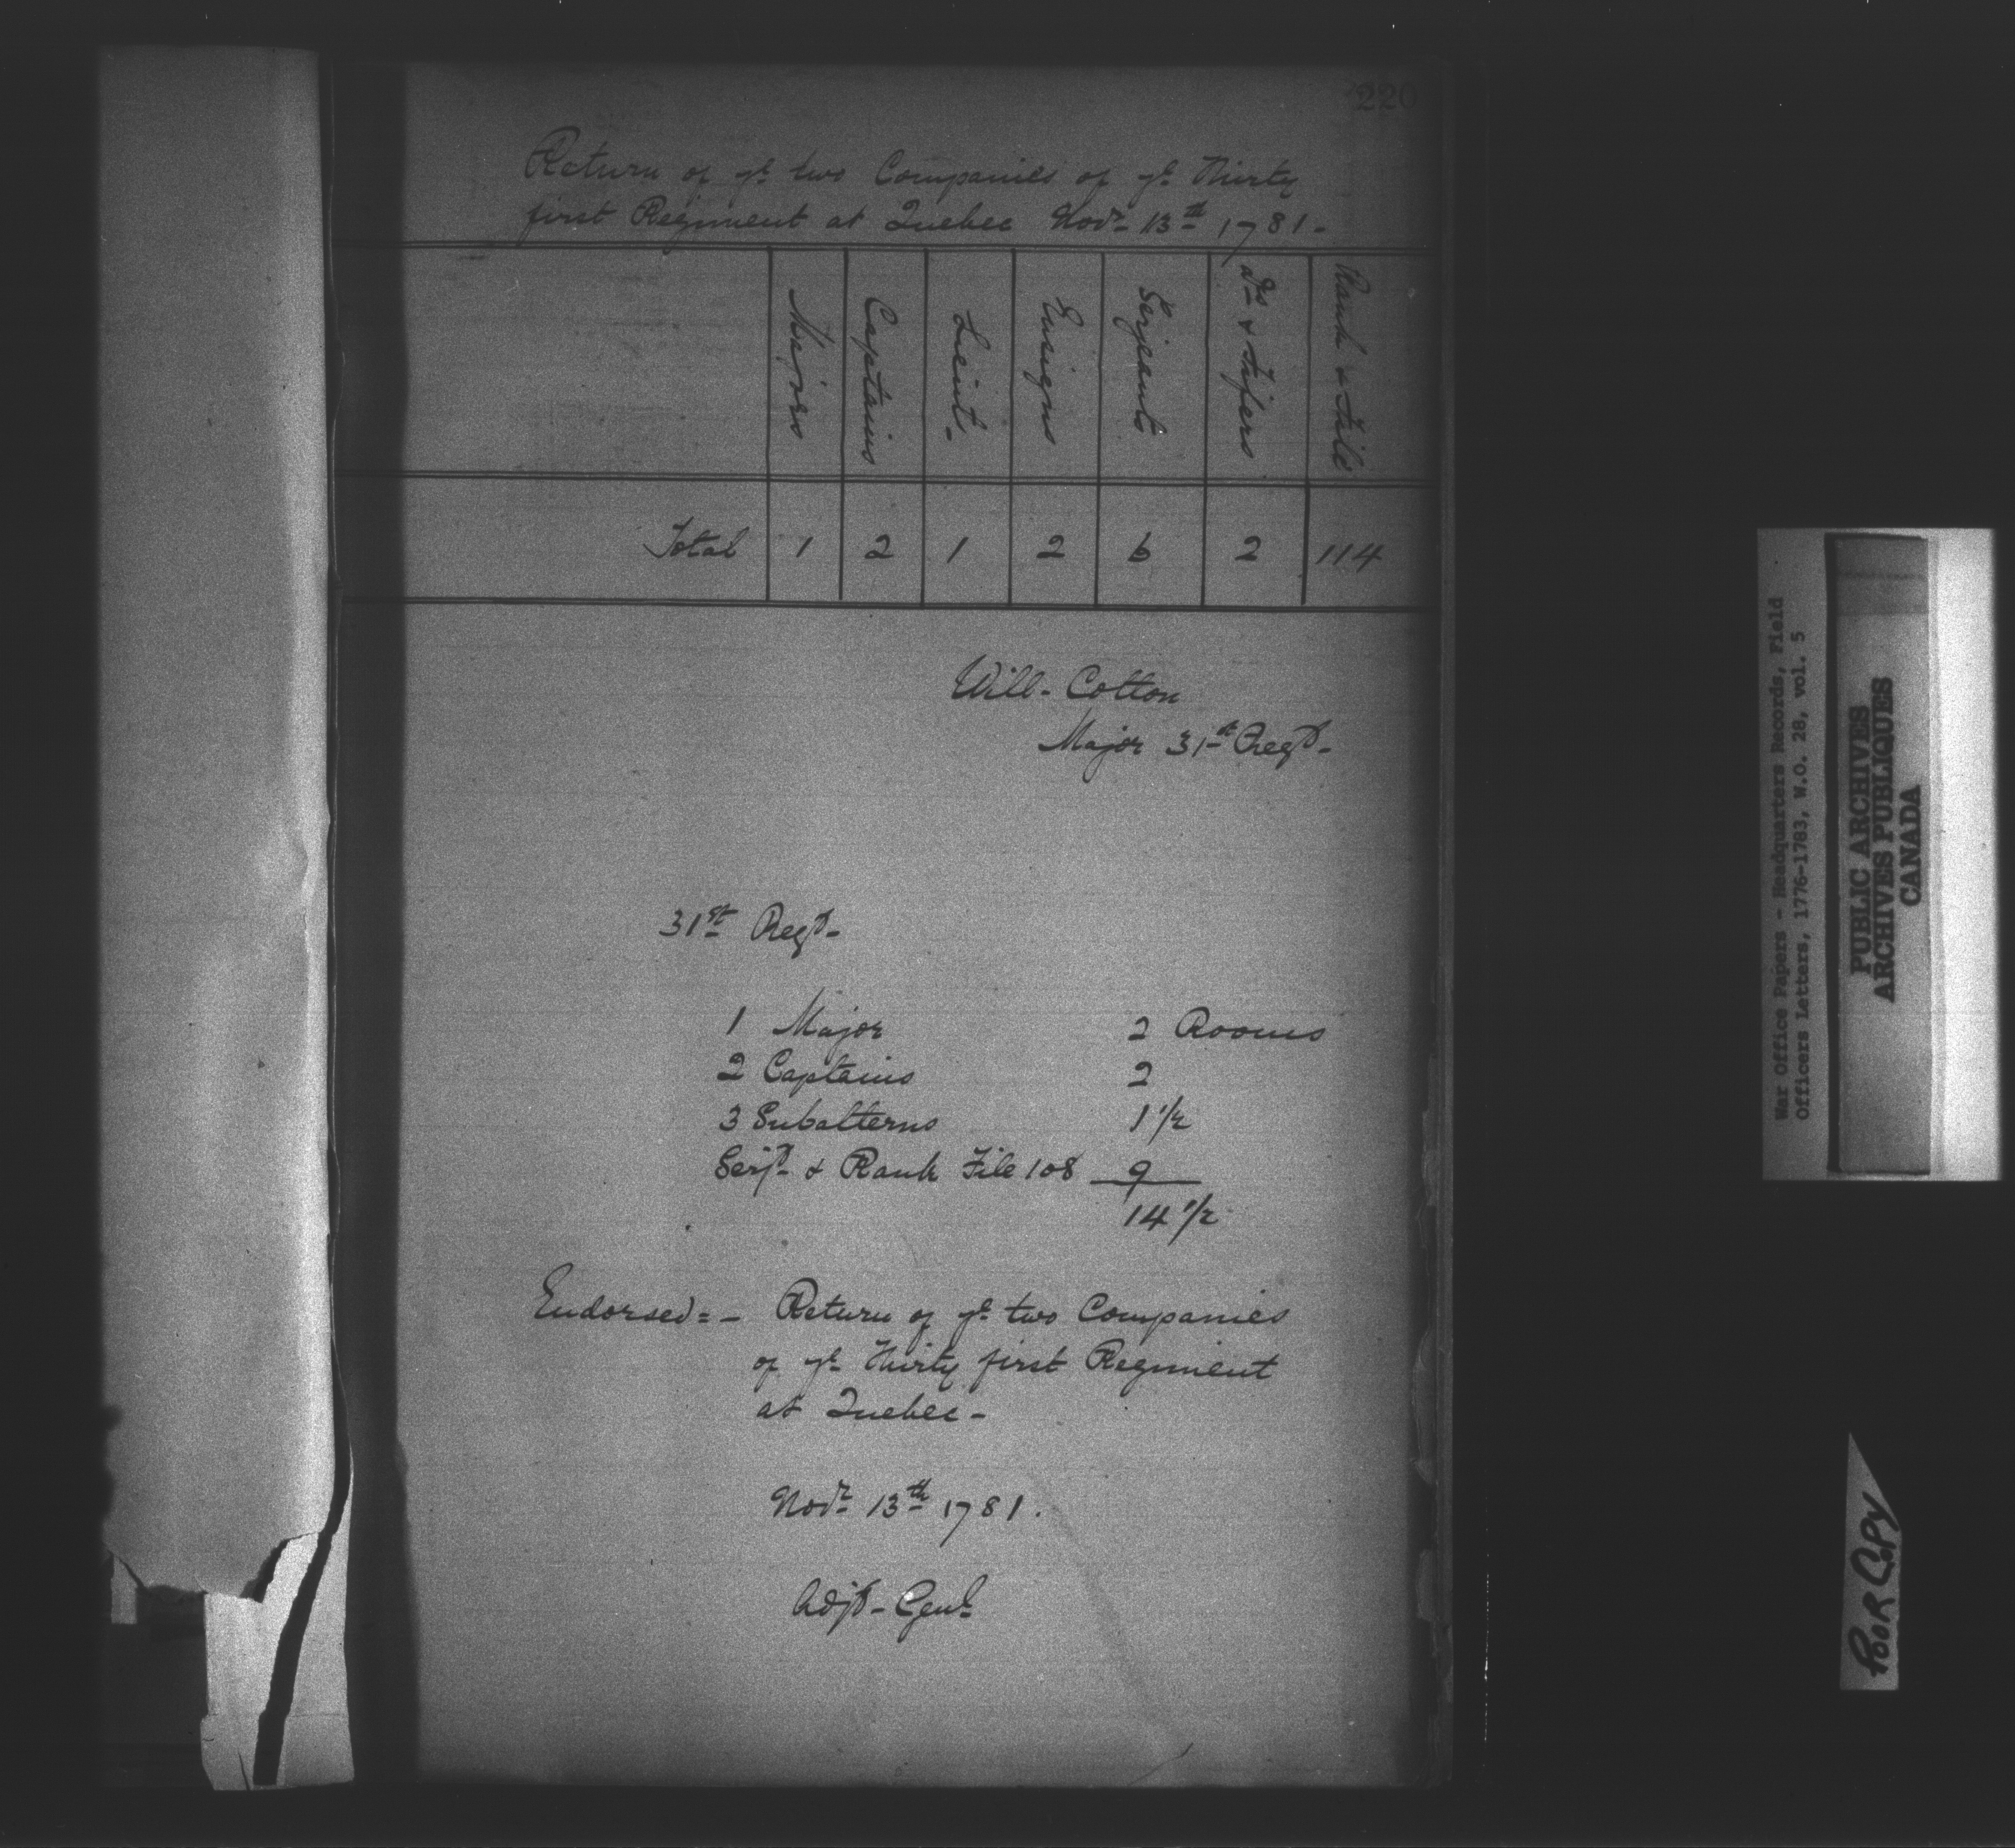 220
Return of ye two Companies of ye Thirty
first Regiment at Quebec Novr 13th 1781.-
Majors Captains Lieut- Ensigns Serjeants Drs & Fifers Rank & File
Total 1 2 1 2 6 2 114
Will- Cotton
Major 31st Regt-
31st Regt-
1 Major 2 Rooms
2 Captains 2
3 Subalterns 1 1/2
Serjt- & Rank File 108 9
14 1/2
Endorsed:- Return of ye two Companies
of ye Thirty first Regiment
at Quebec-
Novr 13th 1781.
Adjt- Genl
War Office Papers - Headquarters Records, Field
Officers Letters, 1776-1783, W.O. 28, vol. 5
PUBLIC ARCHIVES
ARCHIVES PUBLIQUES
CANADA
POOR COPY